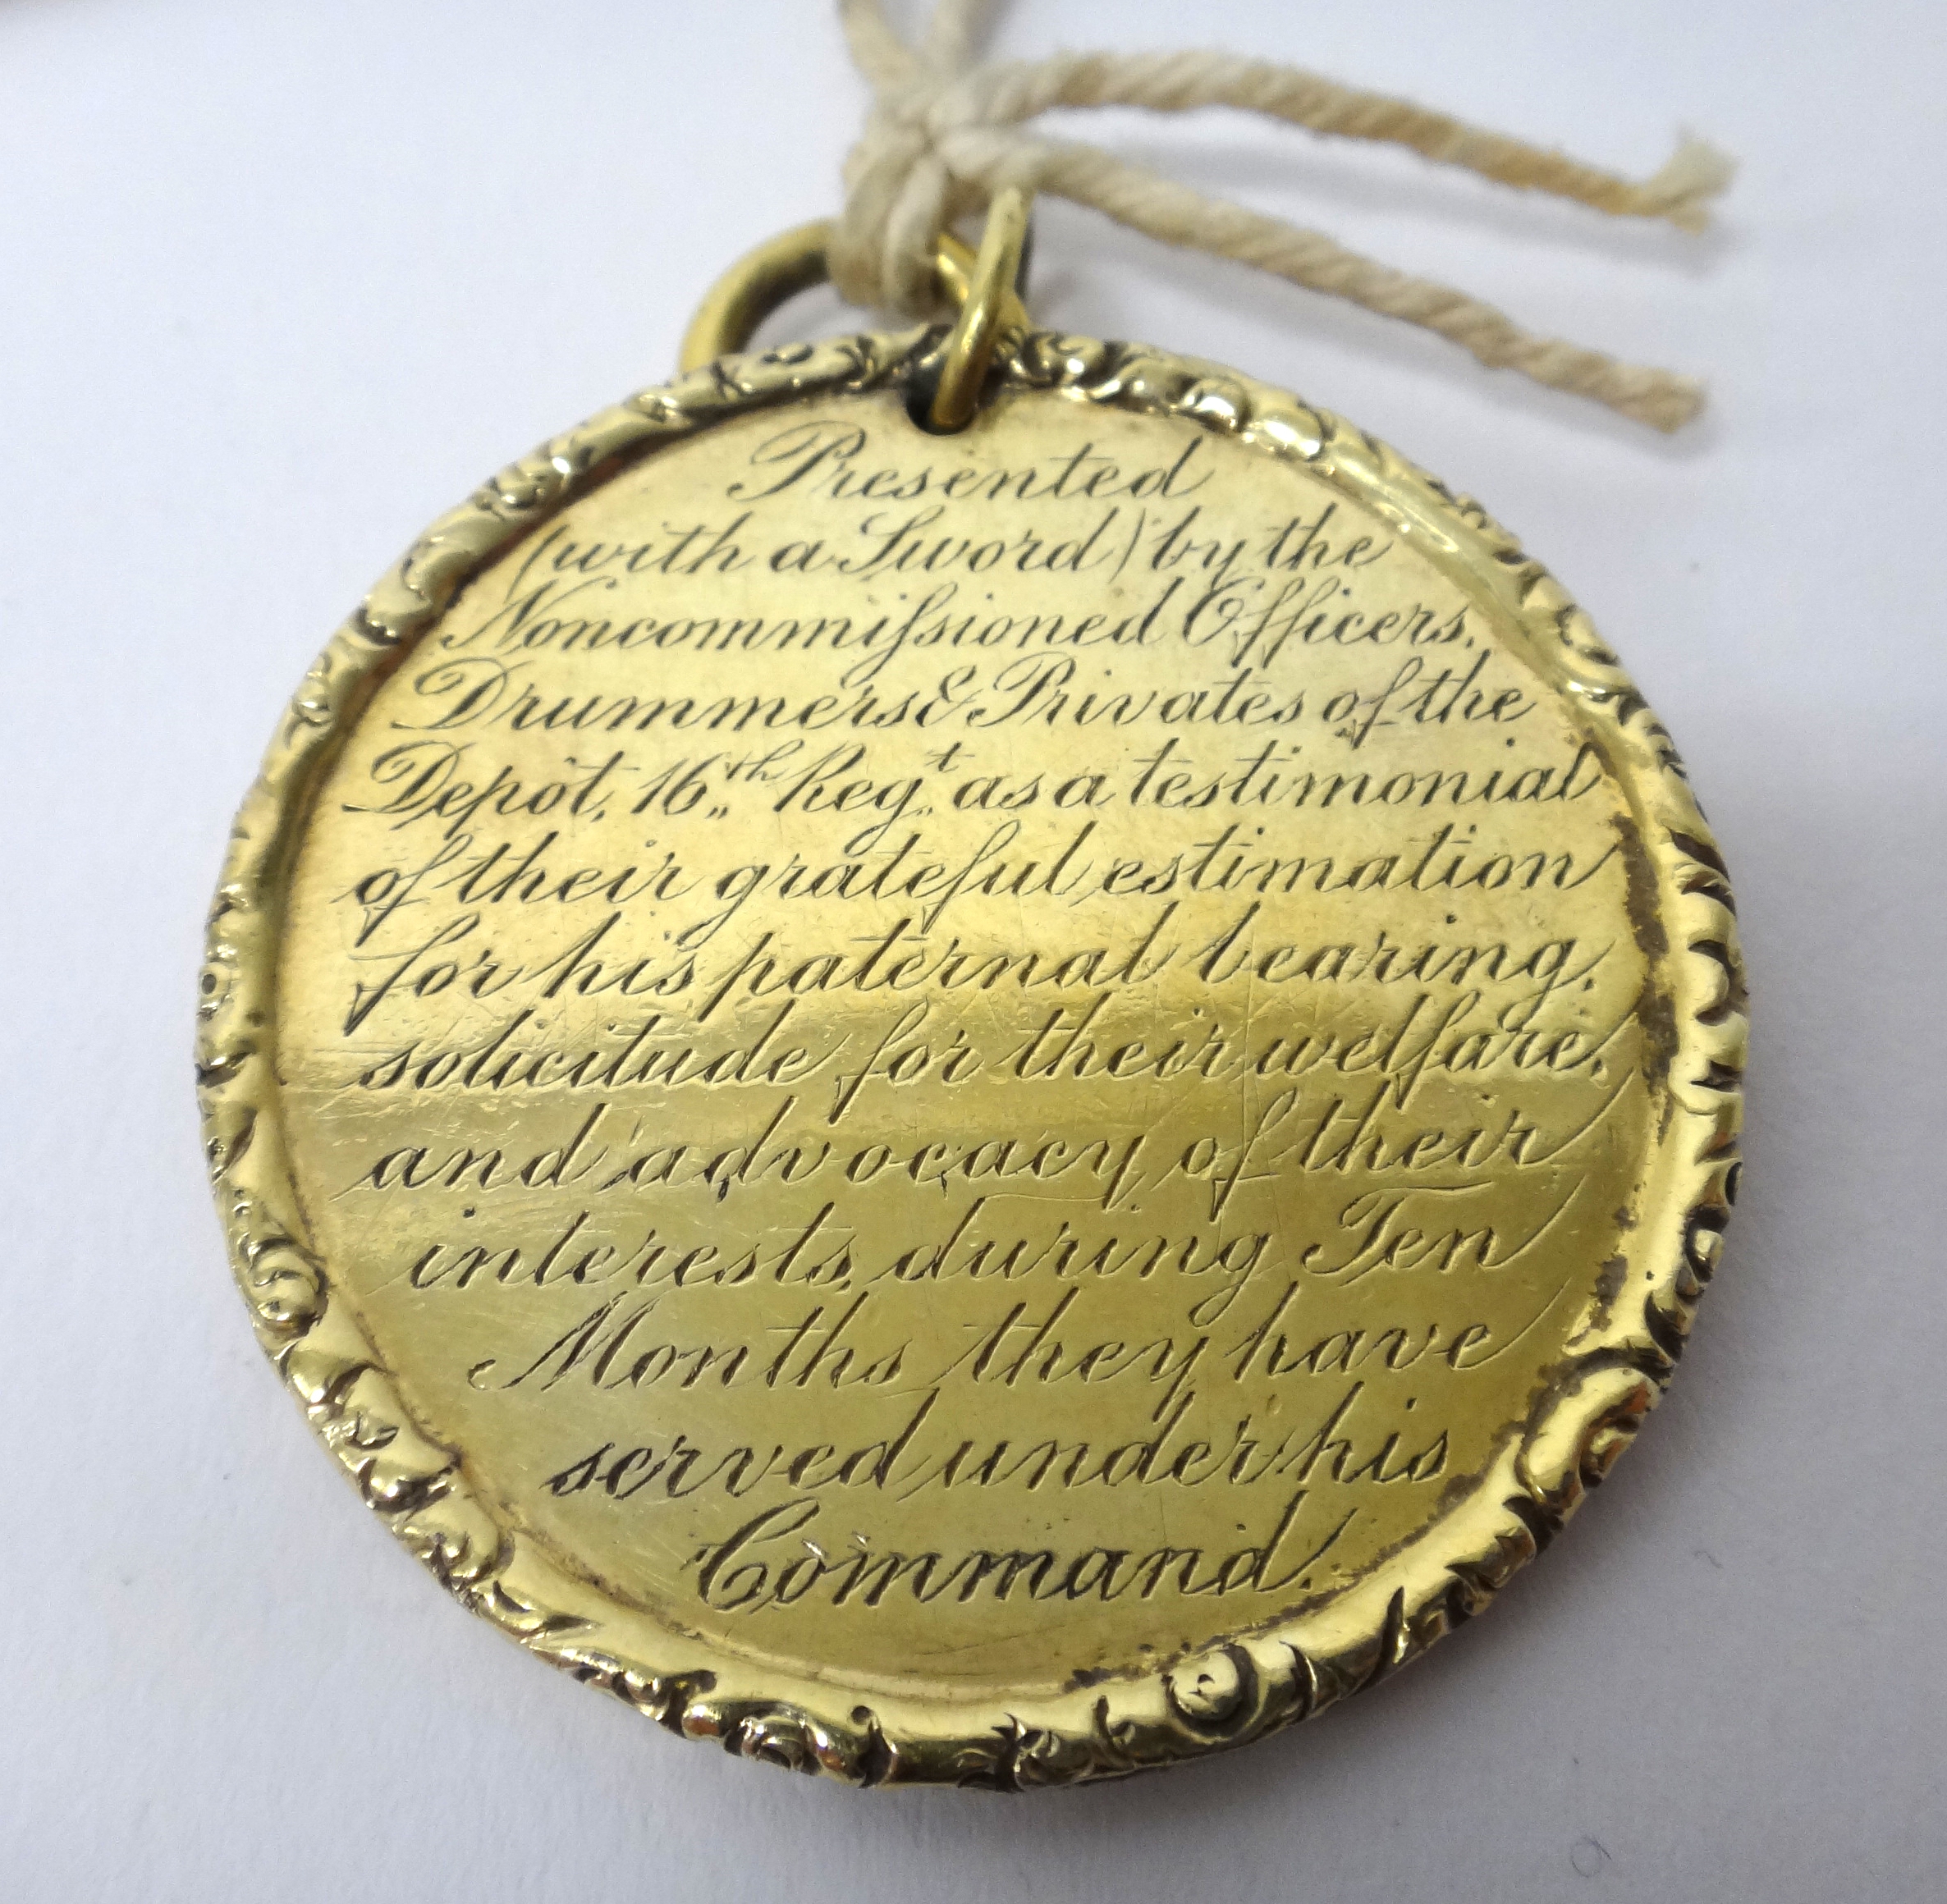 Presented
(with a Sword) by the
Noncommiſsioned Officers,
Drummers & Privates of the
Depôt, 16th Regt as a testimonial
of their grateful estimation
for his paternal bearing,
solicitude for their welfare,
and advocacy of their
interests, during Ten
Months they have
served under his
Command.